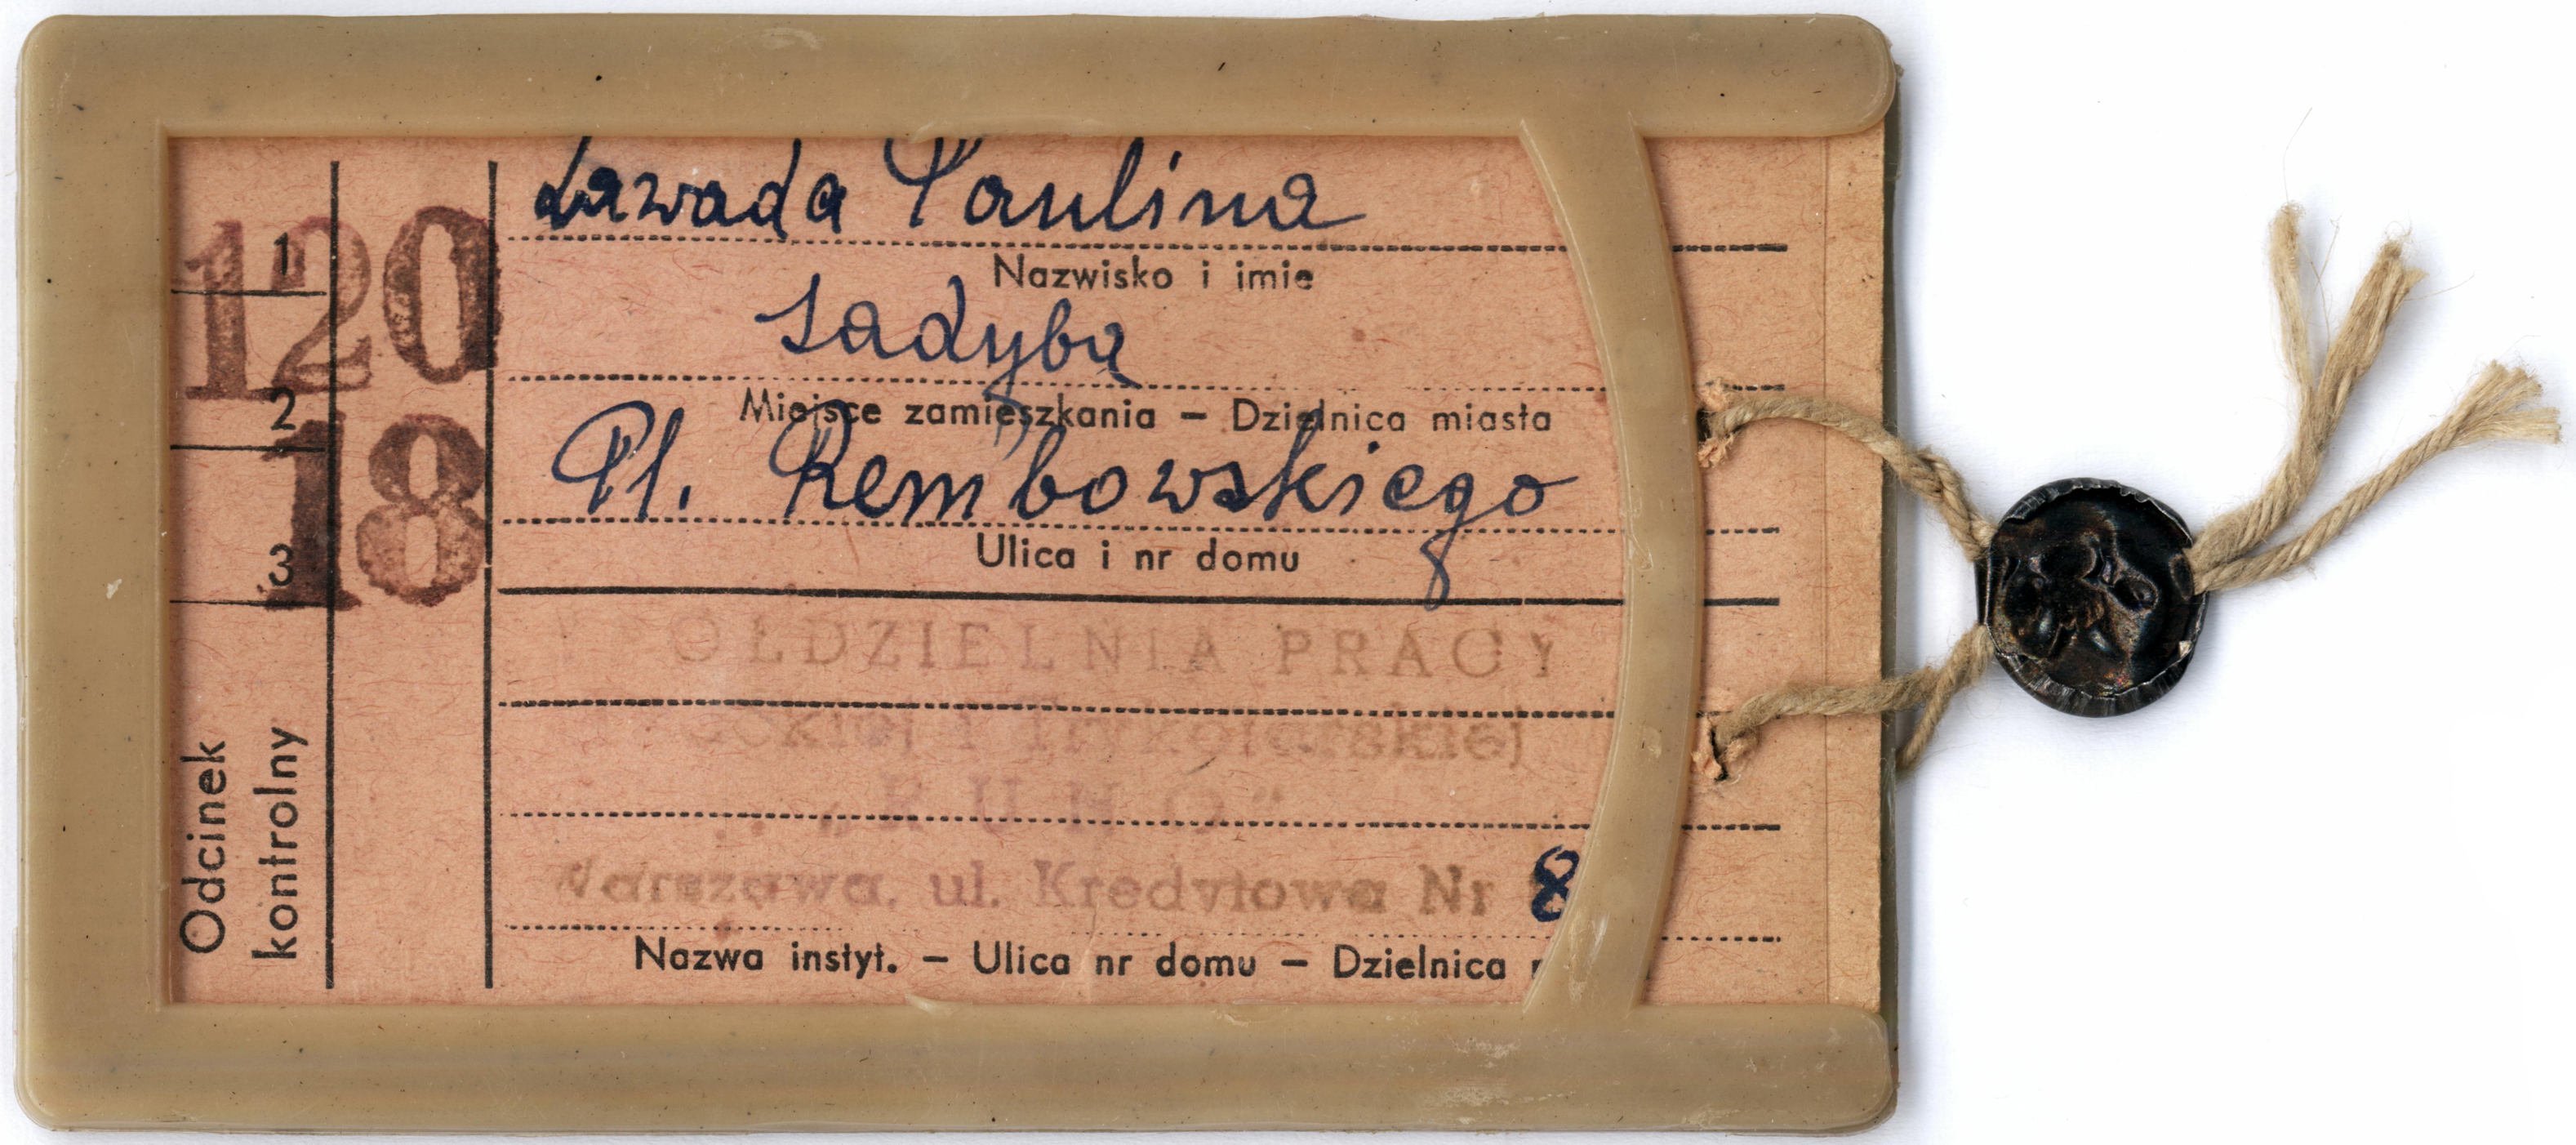 120
18
1
2
3
Odcinek
kontrolny
Zawada Paulina
Nazwisko i imię
Sadyba
Miejsce zamieszkania — Dzielnica miasta
Pl. Rembowskiego
Ulica i nr domu
8
OŁDZIELNIA PRACY
"RUNO"
Warszawa, ul. Kredytowa Nr 8
Nazwa instyt. — Ulica nr domu — Dzielnica